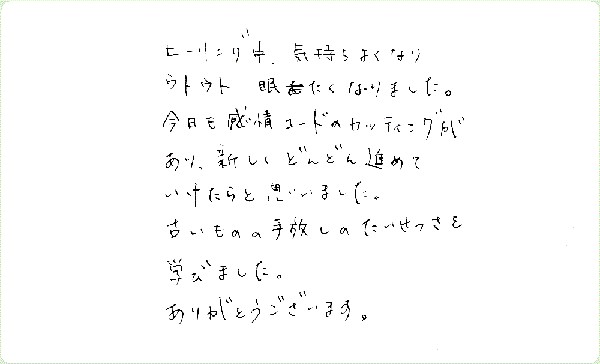 ヒーリング中、気持ちよくなり
ウトウト 眠たくなりました。
今日も感情コードのカッティングが
あり、新しくどんどん進めて
いけたらと思いました。
古いものの手放しのたいせつさを
学びました。
ありがとうございます。